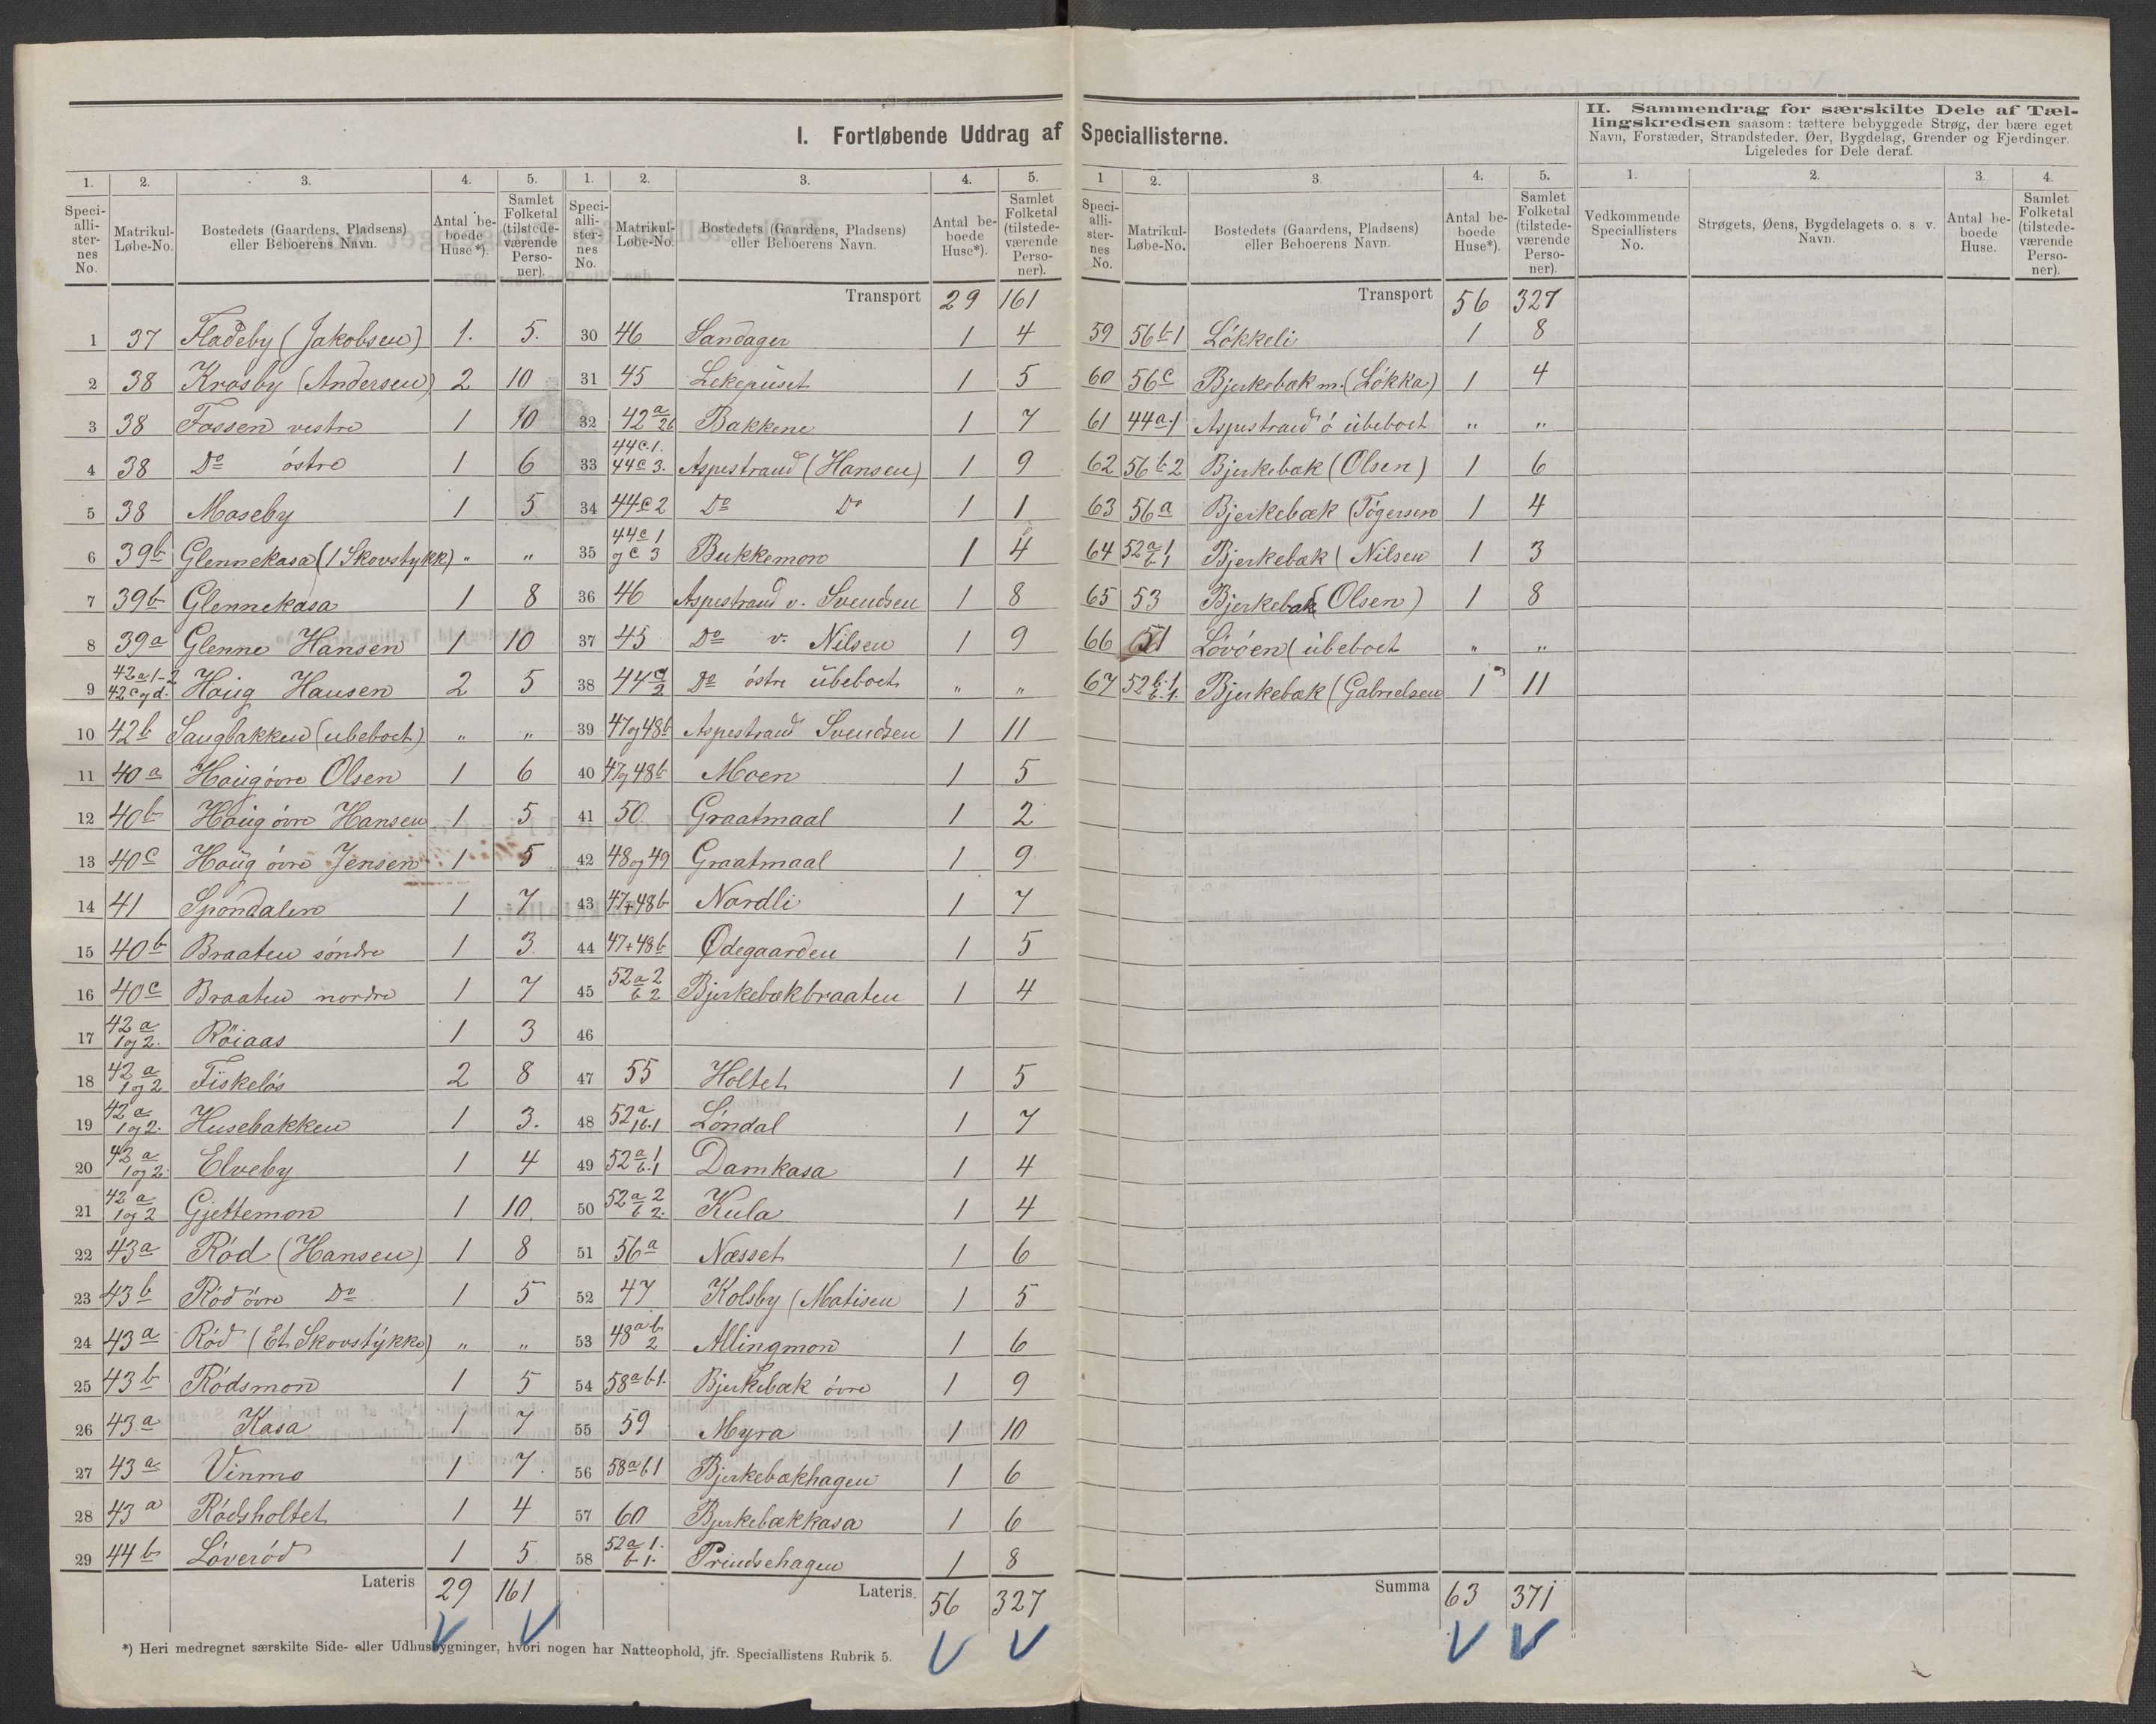 I. Fortløbende Uddrag af Speciallisterne.
II. Sammendrag for særskilte Dele af Tællingskredsen saasom: tættere bebyggede Strøg, der bære eget
Navn, Forstæder, Strandsteder, Øer, Bygdelag, Grender og Fjerdinger.
Ligeledes for Dele deraf.
1. 2. 3. 4. 5.
Speciallisternes No. Matrikul-Løbe-No. Bostedets (Gaardens, Pladsens) eller Beboerens Navn. Antal beboede Huse*). Samlet Folketal (tilstedeværende Personer).
1 37 Fladeby (Jakobsen) 1. 5.
2 38 Krosby (Andersen) 2 10
3 38 Fossen vestre 1 10
4 38 Do östre 1 6
5 38 Moseby 1 5
6 39b Glennekasa (1 Skovstykk) " "
7 39b Glennekasa 1 8
8 39a Glenne Hansen 1 10
9 42a 1-2 42c og d. Houg Hansen 2 5
10 42b Saugbakken (ubeboet) " "
11 40a Houg övre Olsen 1 6
12 40b Houg övre Hansen 1 5
13 40c Houg övre Jensen 1 5
14 41 Spondalen 1 7
15 40b Braaten söndre 1 3
16 40c Braaten nordre 1 7
17 42a 1 og 2. Röiaas 1 3
18 42a 1 og 2 Fiskelös 2 8
19 42a 1 og 2. Husebakken 1 3.
20 43a 1 og 2. Elveby 1 4
21 42a 1 og 2 Gjettemon 1 10.
22 43a Röd (Hansen) 1 8
23 43b Röd övre Do 1 5
24 43a Röd (Et Skovstykke) " "
25 43b Rödsmon 1 5
26 43a Kasa 1 7
27 43a Vinmo 1 7.
28 43a Rödsholtet 1 4
29 44b Löveröd 1 5
Lateris 29 161
1. 2. 3. 4. 5.
Speciallisternes No. Matrikul-Løbe-No. Bostedets (Gaardens, Pladsens) eller Beboerens Navn. Antal beboede Huse*). Samlet Folketal (tilstedeværende Personer).
Transport 29 161
30 46 Sandager 1 4
31 45 Lekepuset 1 5
32 42a 26 Bakkene 1 7
33 44c.1. 44c 3. Aspestrand (Hansen) 1 9
34 44c 2 Do Do 1 1
35 44c 1 og c 3 Bukkemon 1 4
36 46 Aspestrand v. Svendsen 1 8
37 45 Do v. Nilsen 1 9
38 44a 2 Do östre ubeboet " "
39 47 og 48b Aspestrand Svendsen 1 11
40 47 og 48b Moen 1 5
41 50 Graatmaal 1 2
42 48 og 49 Graatmaal 1 9
43 47+48b Nordli 1 7
44 47+48b Ødegaarden 1 5
45 52a 2 b 2 Bjerkebækbraaten 1 4
46
47 55 Holtet 1 5
48 52a 1b.1 Löndal 1 7
49 52a 1 b.1 Damkasa 1 4
50 52a 2 b 2. Kula 1 4
51 56a Næsset 1 6
52 47 Kolsby (Matisen 1 5
53 48a b 2 Allingmon 1 6
54 58a b 1. Bjerkebæk övre 1 9
55 59 Myra 1 10
56 58a b 1 Bjerkebækhagen 1 6
57 60 Bjerkebækkasa 1 6
58 52a 1. b 1. Prindsehagen 1 8
Lateris. 56 327
1 2. 3. 4. 5.
Speciallisternes No. Matrikul-Løbe-No. Bostedets (Gaardens, Pladsens) eller Beboerens Navn. Antal beboede Huse*). Samlet Folketal (tilstedeværende Personer).
Transport 56 327
59 56b 1 Lökkeli 1 8
60 56c Bjerkebæk m. (Lökka) 1 4
61 44a.1 Aspestrand ö ubeboet " "
62 56b 2 Bjerkebæk (Olsen) 1 6
63 56a Bjerkebæk (Tögersen 1 4
64 52a 1 b 1 Bjerkebæk (Nilsen 1 3
65 53 Bjerkebæk (Olsen) 1 8
66 51 Lövöen (ubeboet " "
67 52b.1 b.1. Bjerkebæk (Gabrielsen 1 11
Summa 63 371
1. 2. 3. 4.
Vedkommende Speciallisters No. Strøgets, Øens, Bygdelagets o. s v. Navn. Antal beboede Huse. Samlet Folketal (tilstedeværende Personer).
*) Heri medregnet særskilte Side- eller Udhusbygninger, hvori nogen har Natteophold, jfr. Speciallistens Rubrik 5.